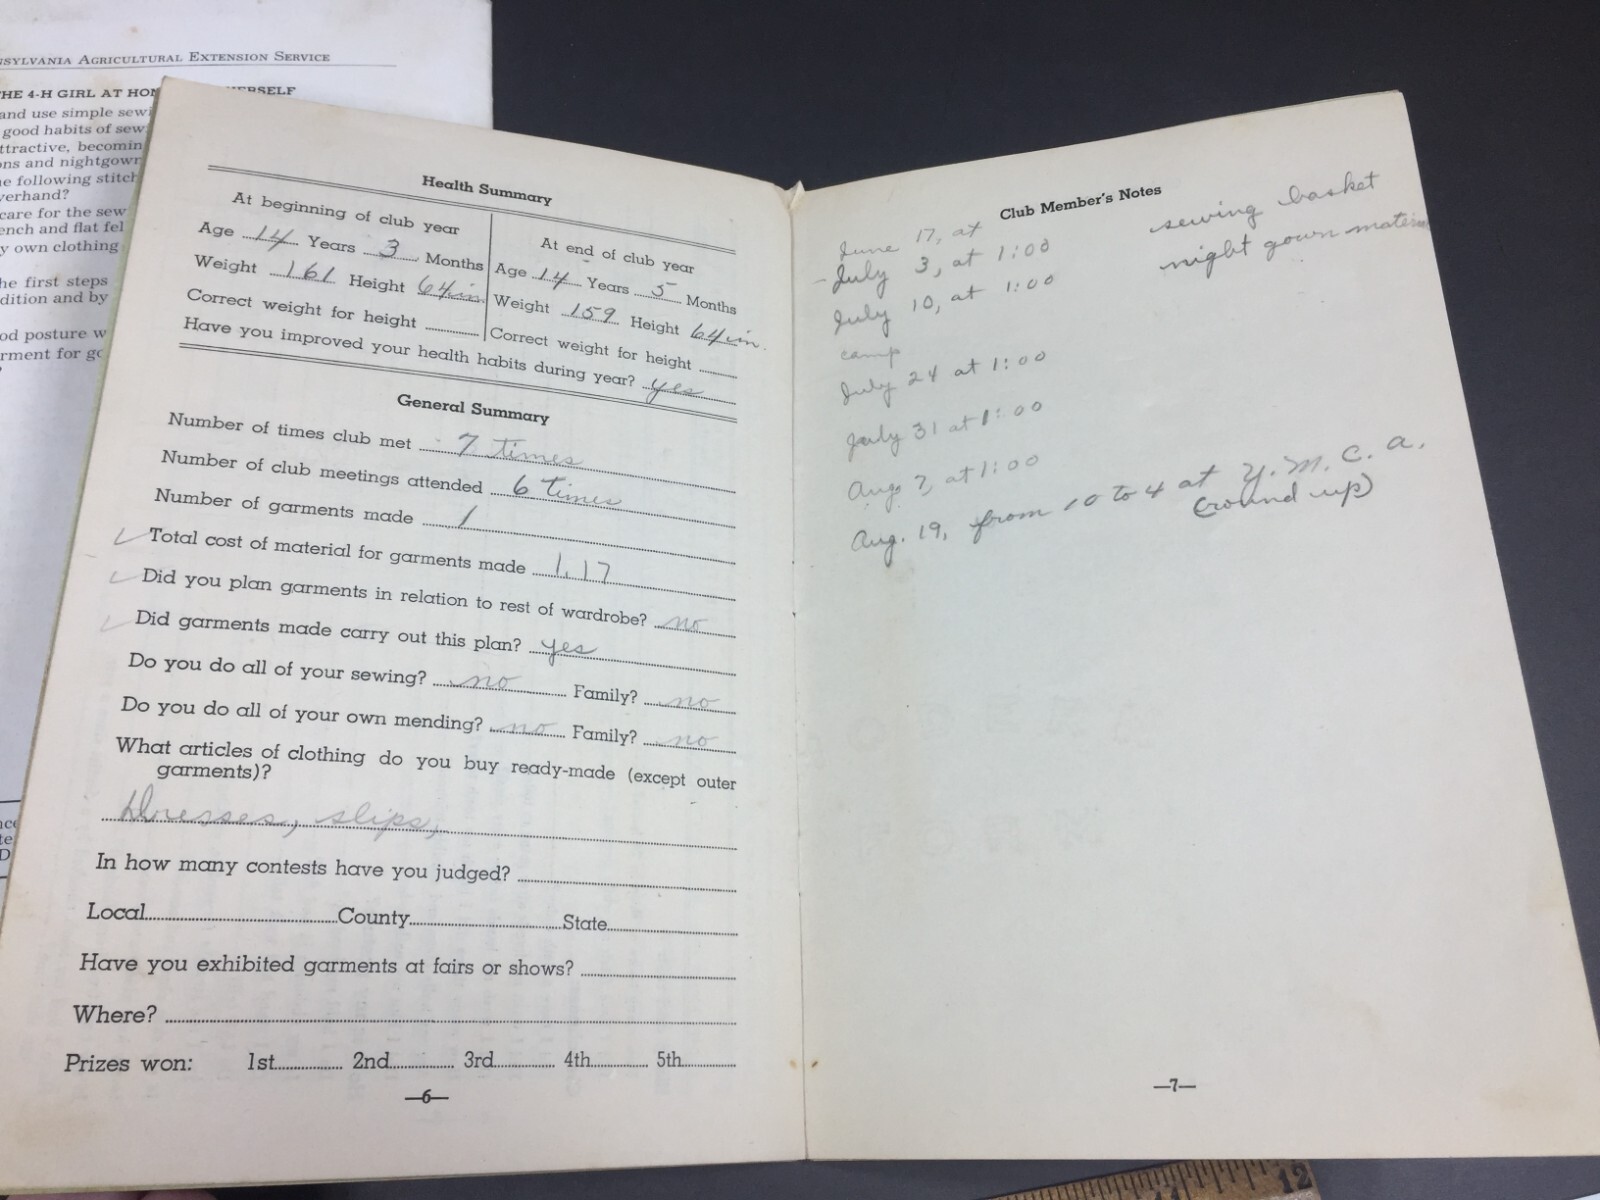 NSYLVANIA AGRICULTURAL EXTENSION SERVICE
THE 4-H GIRL AT HERSELF
and use simple
good habits of
ons and
e following
verhand?
care for the sew
ench and flat
y own clothing
he first steps
dition and by
od posture
rment for
Health Summary
At beginning of club year
Age 14 Years 3 Months
Weight 161 Height 64in.
Correct weight for height
At end of club year
Age 14 Years 5 Months
Weight 159 Height 64in.
Correct weight for height
Have you improved your health habits during year? yes
General Summary
Number of times club met 7 times
Number of club meetings attended 6 times
Number of garments made 1
Total cost of material for garments made 1.17
Did you plan garments in relation to rest of wardrobe? no
Did garments made carry out this plan? yes
Do you do all of your sewing? no Family? no
Do you do all of your own mending? no Family? no
What articles of clothing do you buy ready-made (except outer
garments)?
Dresses, slips,
In how many contests have you judged?
Local County State
Have you exhibited garments at fairs or shows?
Where?
Prizes won: 1st 2nd 3rd 4th 5th
—6—
Club Member's Notes
June 17, at sewing basket
- July 3, at 1:00 night gown material
July 10, at 1:00
camp
July 24 at 1:00
July 31 at 1:00
Aug 7, at 1:00
Aug. 19, from 10 to 4 at Y.M.C.A.
(round up)
—7—
12